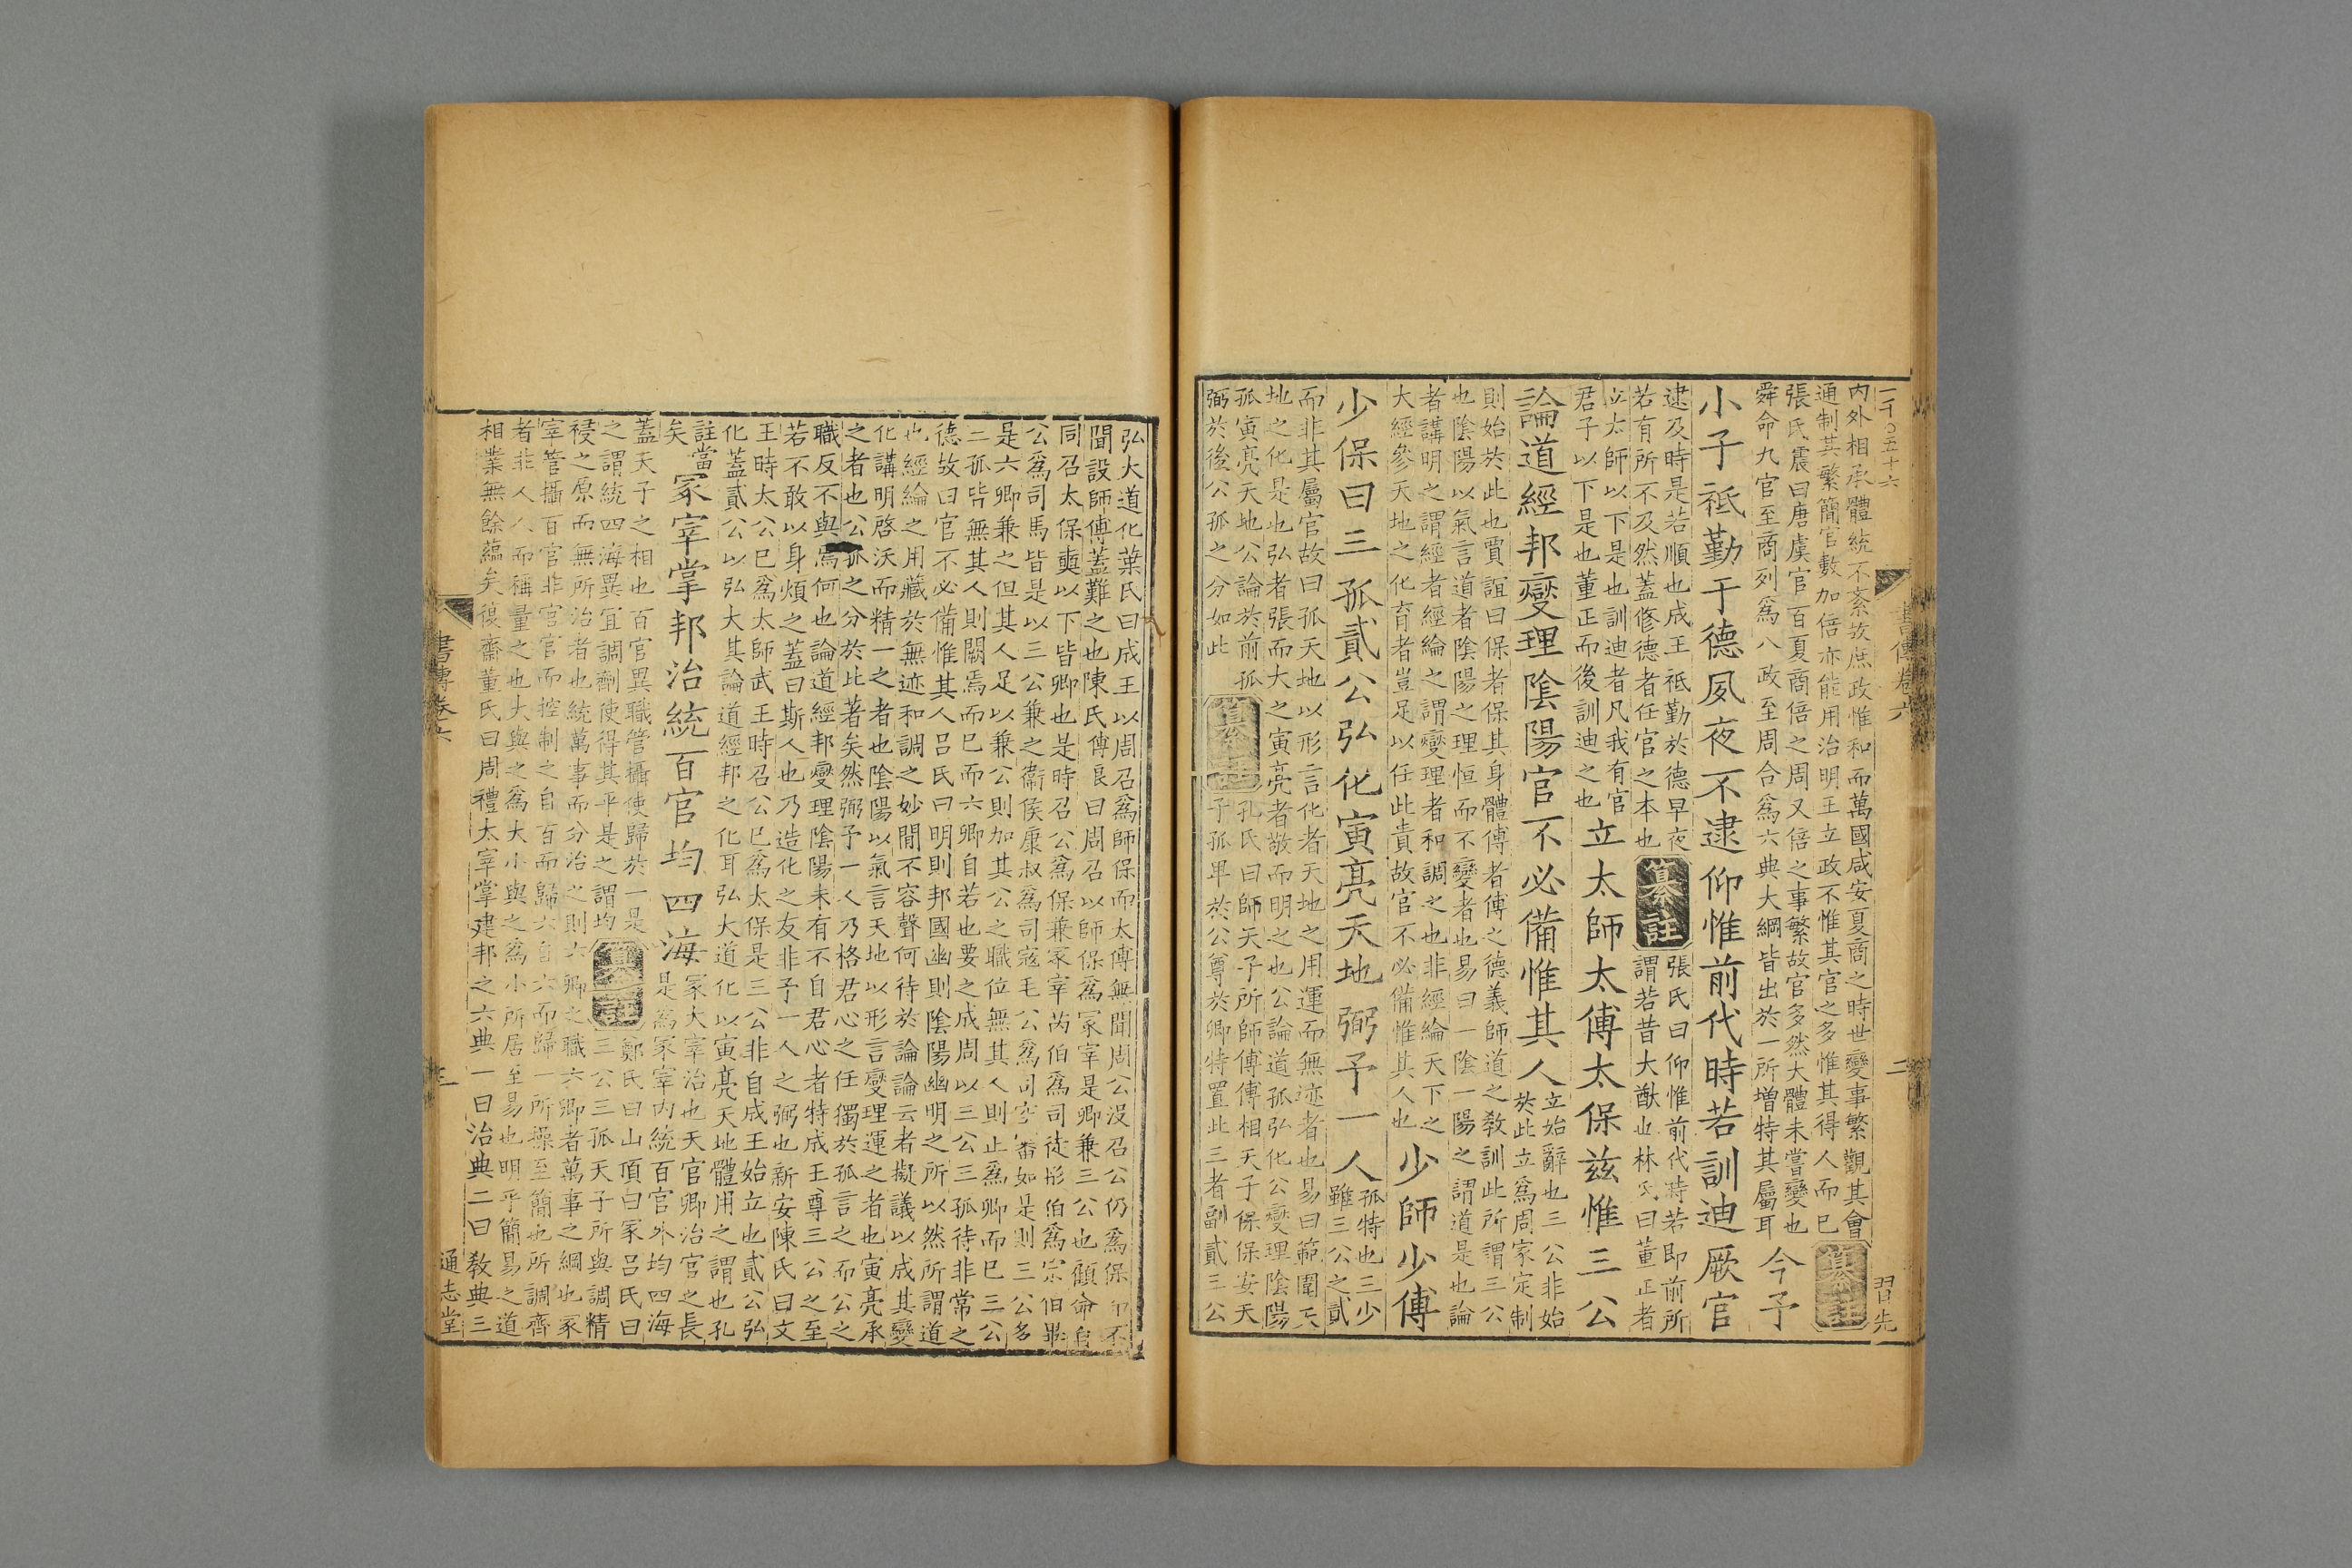 一千〇五十六
書傳卷六
二
內外相承體統不紊故庶政惟和而萬國咸安夏商之時世變事繁觀其會
通制其繁簡官數加倍亦能用治明王立政不惟其官之多惟其得人而已
纂註
張氏震曰唐虞官百夏商倍之周又倍之事繁故官多然大體未嘗變也
舜命九官至商列爲八政至周合爲六典大綱皆出於一所增特其屬耳
今予
小子祗勤于德夙夜不逮仰惟前代時若訓迪厥官
逮及時是若順也成王祗勤於德早夜
若有所不及然蓋修德者任官之本也
纂註
張氏曰仰惟前代時若即前所
謂若昔大猷也林氏曰董正者
立太師以下是也訓迪者凡我有官
君子以下是也董正而後訓迪之也
立太師太傅太保茲惟三公
論道經邦燮理陰陽官不必備惟其人
立始辭也三公非始
於此立爲周家定制
則始於此也賈誼曰保者保其身體傅者傅之德義師道之敎訓此所謂三公
也陰陽以氣言道者陰陽之理恒而不變者也易曰一陰一陽之謂道是也論
者講明之謂經者經綸之謂燮理者和調之也非經綸天下之
大經參天地之化育者豈足以任此責故官不必備惟其人也
少師少傅
少保曰三孤貳公弘化寅亮天地弼予一人
孤特也三少
雖三公之貳
而非其屬官故曰孤天地以形言化者天地之用運而無迹者也易曰範圍天
地之化是也弘者張而大之寅亮者敬而明之也公論道孤弘化公燮理陰陽
孤寅亮天地公論於前孤
弼於後公孤之分如此
纂註
孔氏曰師天子所師傅傅相天子保保安天
子孤卑於公尊於卿特置此三者副貳三公
弘大道化葉氏曰成王以周召爲師保而太傅無聞周公沒召公仍爲保而不
聞設師傅蓋難之也陳氏傅良曰周召以師保爲冢宰是卿兼三公也顧命自
同召太保奭以下皆卿也是時召公爲保兼冢宰芮伯爲司徒彤伯爲宗伯畢
公爲司馬皆是以三公兼之衞侯康叔爲司寇毛公爲司空審如是則三公多
是六卿兼之但其人足以兼公則加其公之職位無其人則止爲卿而已三公
三孤皆無其人則闕焉而已而六卿自若也要之成周以三公三孤待非常之
德故曰官不必備惟其人呂氏曰明則邦國幽則陰陽幽明之所以然所謂道
也經綸之用藏於無迹和調之妙間不容聲何待於論論云者擬議以成其變
化講明啓沃而精一之者也陰陽以氣言天地以形言燮理運之者也寅亮承
之者也公孤之分於此著矣然弼予一人乃格君心之任獨於孤言之而公之
職反不與焉何也論道經邦燮理陰陽未有不自君心者特成王尊三公之至
若不敢以身煩之蓋曰斯人也乃造化之友非予一人之弼也新安陳氏曰文
王時太公已爲太師武王時召公已爲太保是三公非自成王始立也貳公弘
化蓋貳公以弘大其論道經邦之化耳弘大道化以寅亮天地體用之謂也孔
註當
矣
冢宰掌邦治統百官均四海
冢大宰治也天官卿治官之長
是爲冢宰內統百官外均四海
蓋天子之相也百官異職管攝使歸於一是
之謂統四海異宜調劑使得其平是之謂均
纂註
鄭氏曰山頂曰冢呂氏曰
三公三孤天子所與調精
祲之原而無所治者也統萬事而分治之則六卿之職六卿者萬事之綱也冢
宰管攝百官非官官而控制之自百而歸六自六而歸一所操至簡也所調齊
者非人人而稱量之也大與之爲大小與之爲小所居至易也明乎簡易之道
相業無餘蘊矣復齋董氏曰周禮太宰掌建邦之六典一曰治典二曰敎典三
書傳卷六
三
通志堂